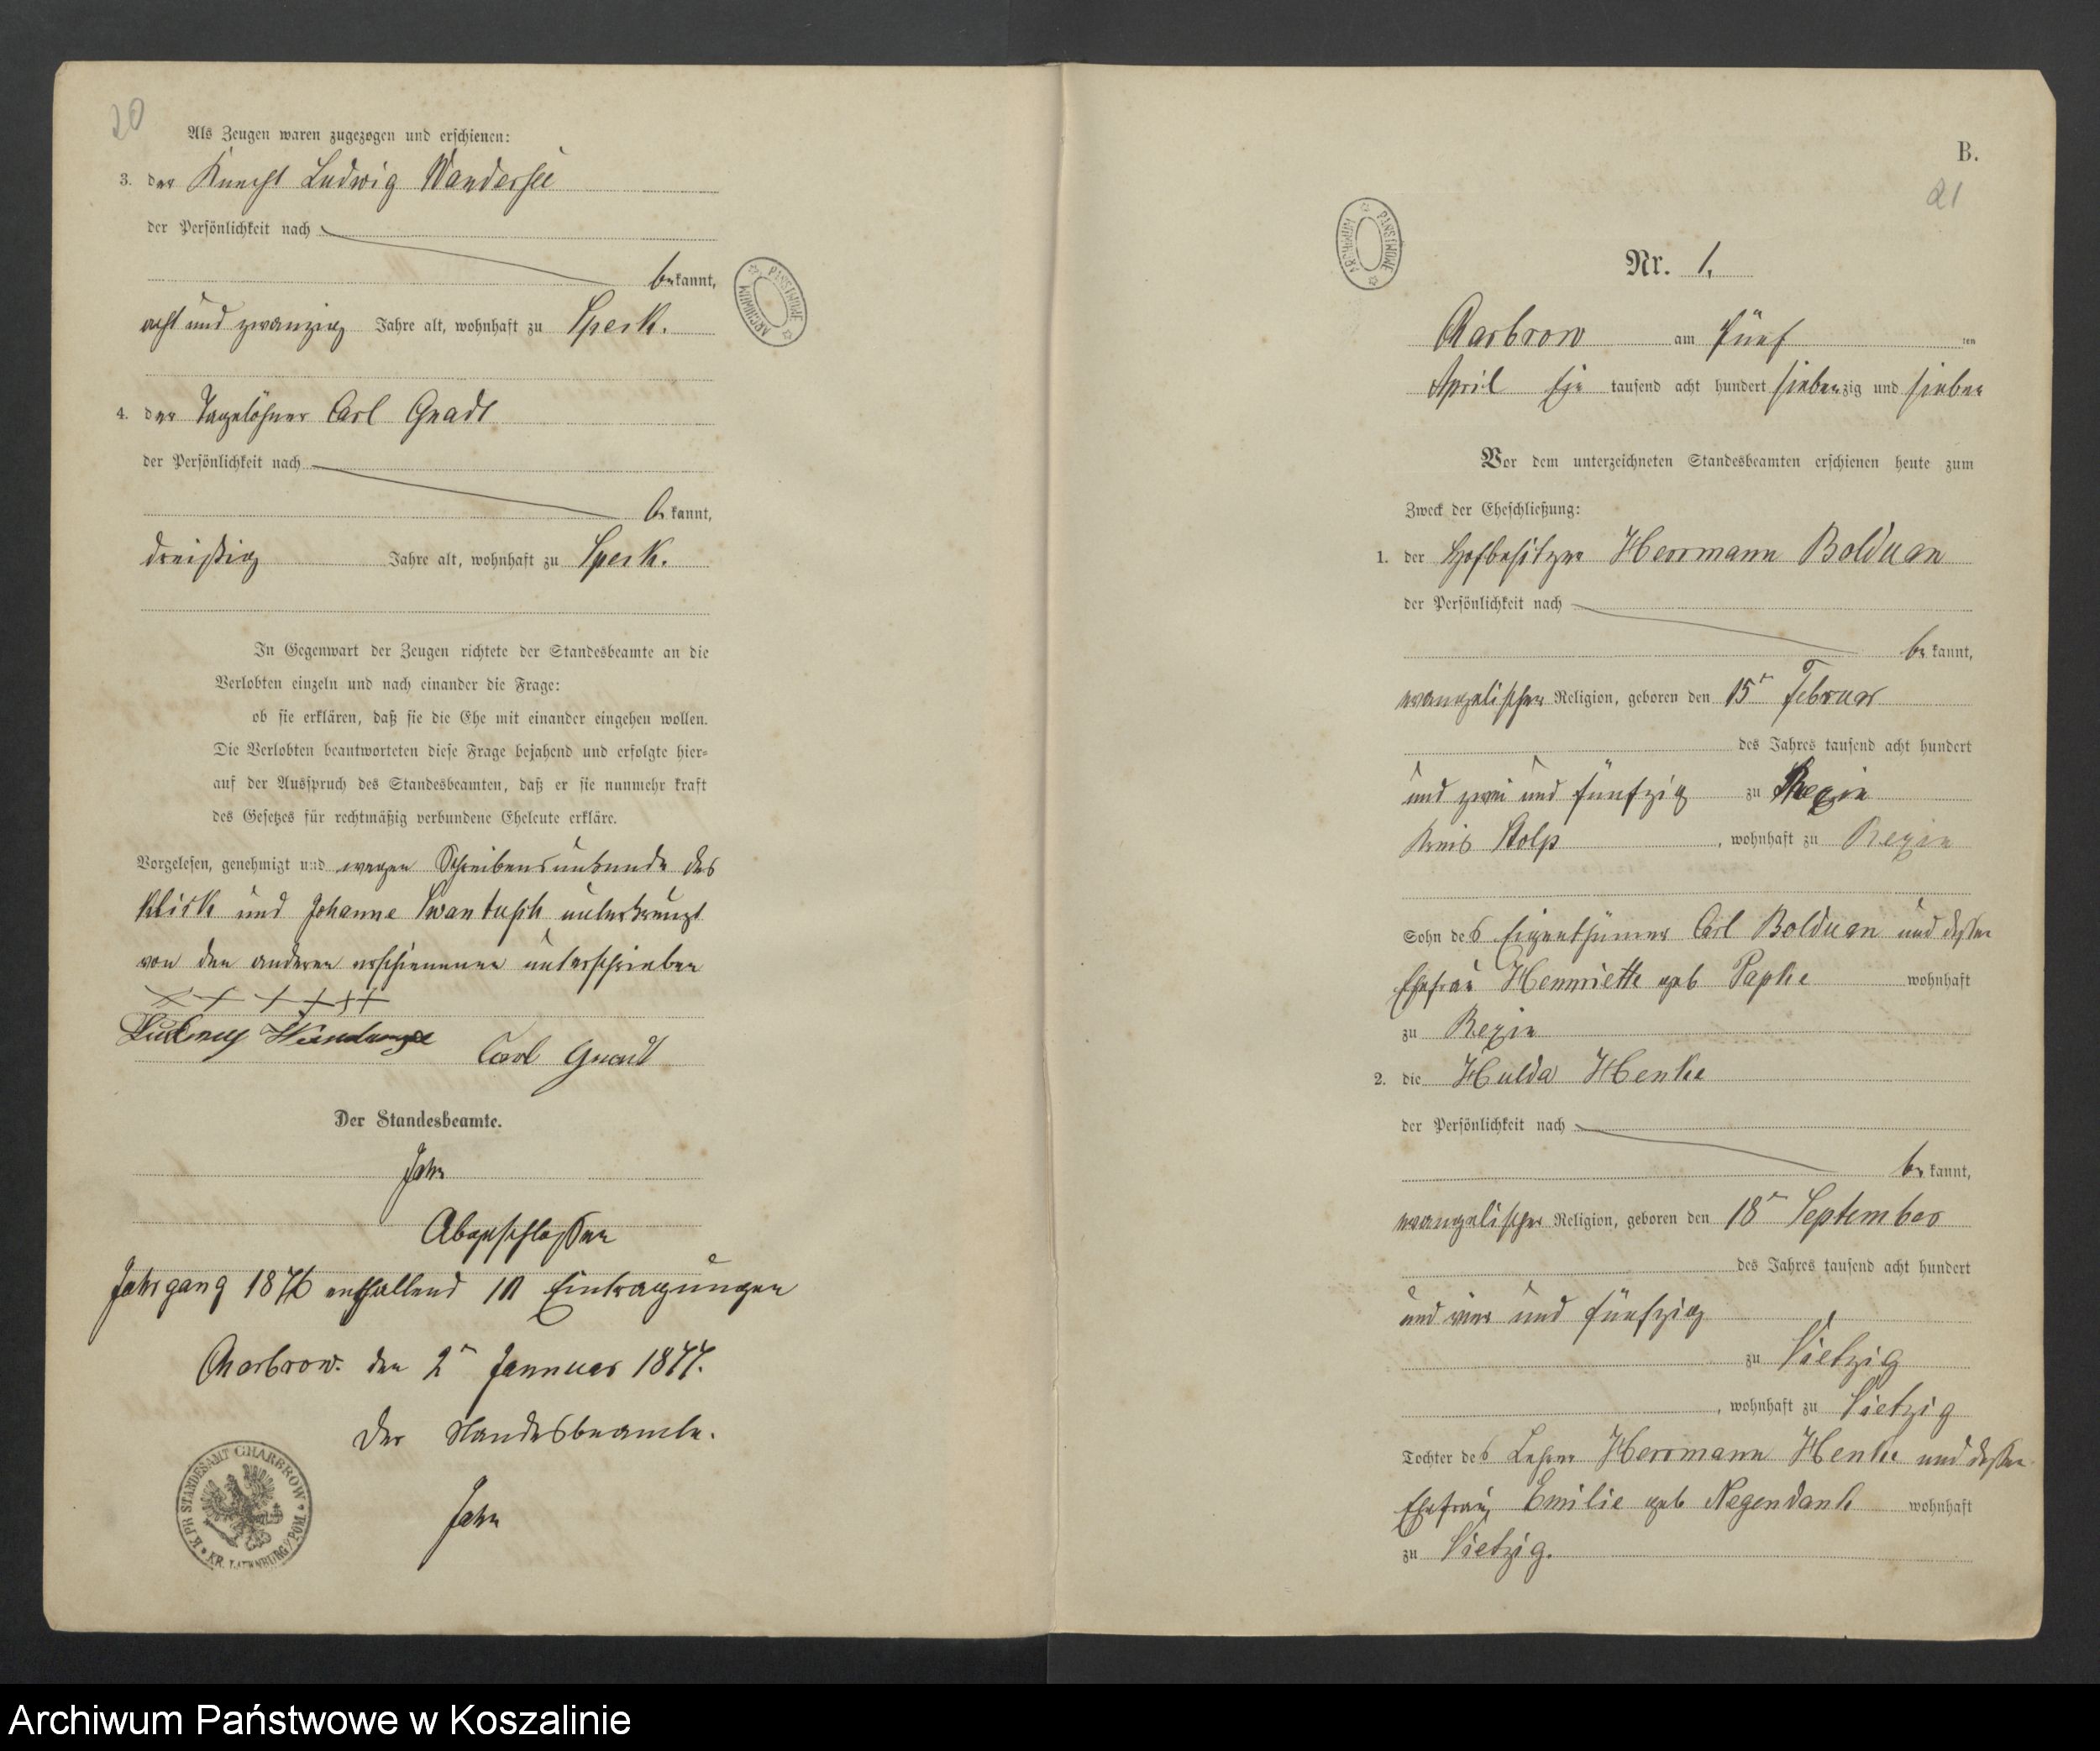 20
Als Zeugen waren zugezogen und erschienen:
3. der Knecht Ludwig Wandersee
der Persönlichkeit nach
bekannt,
acht und zwanzig Jahre alt, wohnhaft zu Speck.
4. der Tagelöhner Carl Gnadt
der Persönlichkeit nach
bekannt,
dreißig Jahre alt, wohnhaft zu Speck.
In Gegenwart der Zeugen richtete der Standesbeamte an die
Verlobten einzeln und nach einander die Frage:
ob sie erklären, daß sie die Ehe mit einander eingehen wollen.
Die Verlobten beantworteten diese Frage bejahend und erfolgte hier-
auf der Ausspruch des Standesbeamten, daß er sie nunmehr kraft
des Gesetzes für rechtmäßig verbundene Eheleute erkläre.
Vorgelesen, genehmigt und wegen Schreibensunkunde des
Klick und Johanne unterkreuzt
von den anderen erschienenen unterschrieben
+ + + + + +
Ludwig Wandersee Carl Gnadt
Der Standesbeamte.
Jahn
Abgeschlossen
Jahrgang 1876 enthaltend 10 Eintragungen
Charbrow. den 2n Jannuar 1877.
Der Standesbeamte.
Jahn
K. PR. STANDESAMT CHARBROW
KR. LAUENBURG I/POM.
ARCHIWUM PAŃSTWOWE
B.
21
ARCHIWUM PAŃSTWOWE
Nr. 1.
Charbrow am Fünf ten
April Ein tausend acht hundert siebenzig und sieben
Vor dem unterzeichneten Standesbeamten erschienen heute zum
Zweck der Eheschließung:
1. der Hofbesitzer Herrmann Bolduan
der Persönlichkeit nach
bekannt,
evangelischer Religion, geboren den 15n Februar
des Jahres tausend acht hundert
und zwei und fünfzig zu Rexin
Kreis Stolp, wohnhaft zu Rexin
Sohn des Eigenthümer Carl Bolduan und dessen
Ehefrau Henriette geb Papke wohnhaft
zu Rexin
2. die Hulda Henke
der Persönlichkeit nach
bekannt,
evangelischer Religion, geboren den 18n September
des Jahres tausend acht hundert
und vier und fünfzig
zu Vietzig
, wohnhaft zu Vietzig
Tochter des Lehrer Herrmann Henke und dessen
Ehefrau Emilie geb Negendank wohnhaft
zu Vietzig.
Archiwum Państwowe w Koszalinie